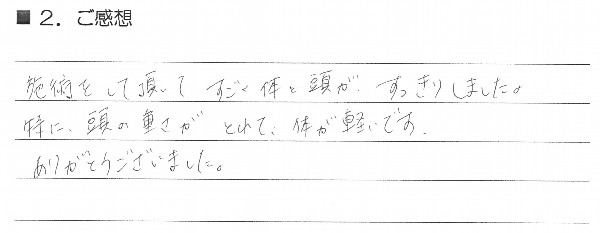 ■ 2. ご感想
施術をして頂いて すごく体と頭が、すっきりしました。
特に、頭の重さが とれて、体が軽いです.
ありがとうございました。